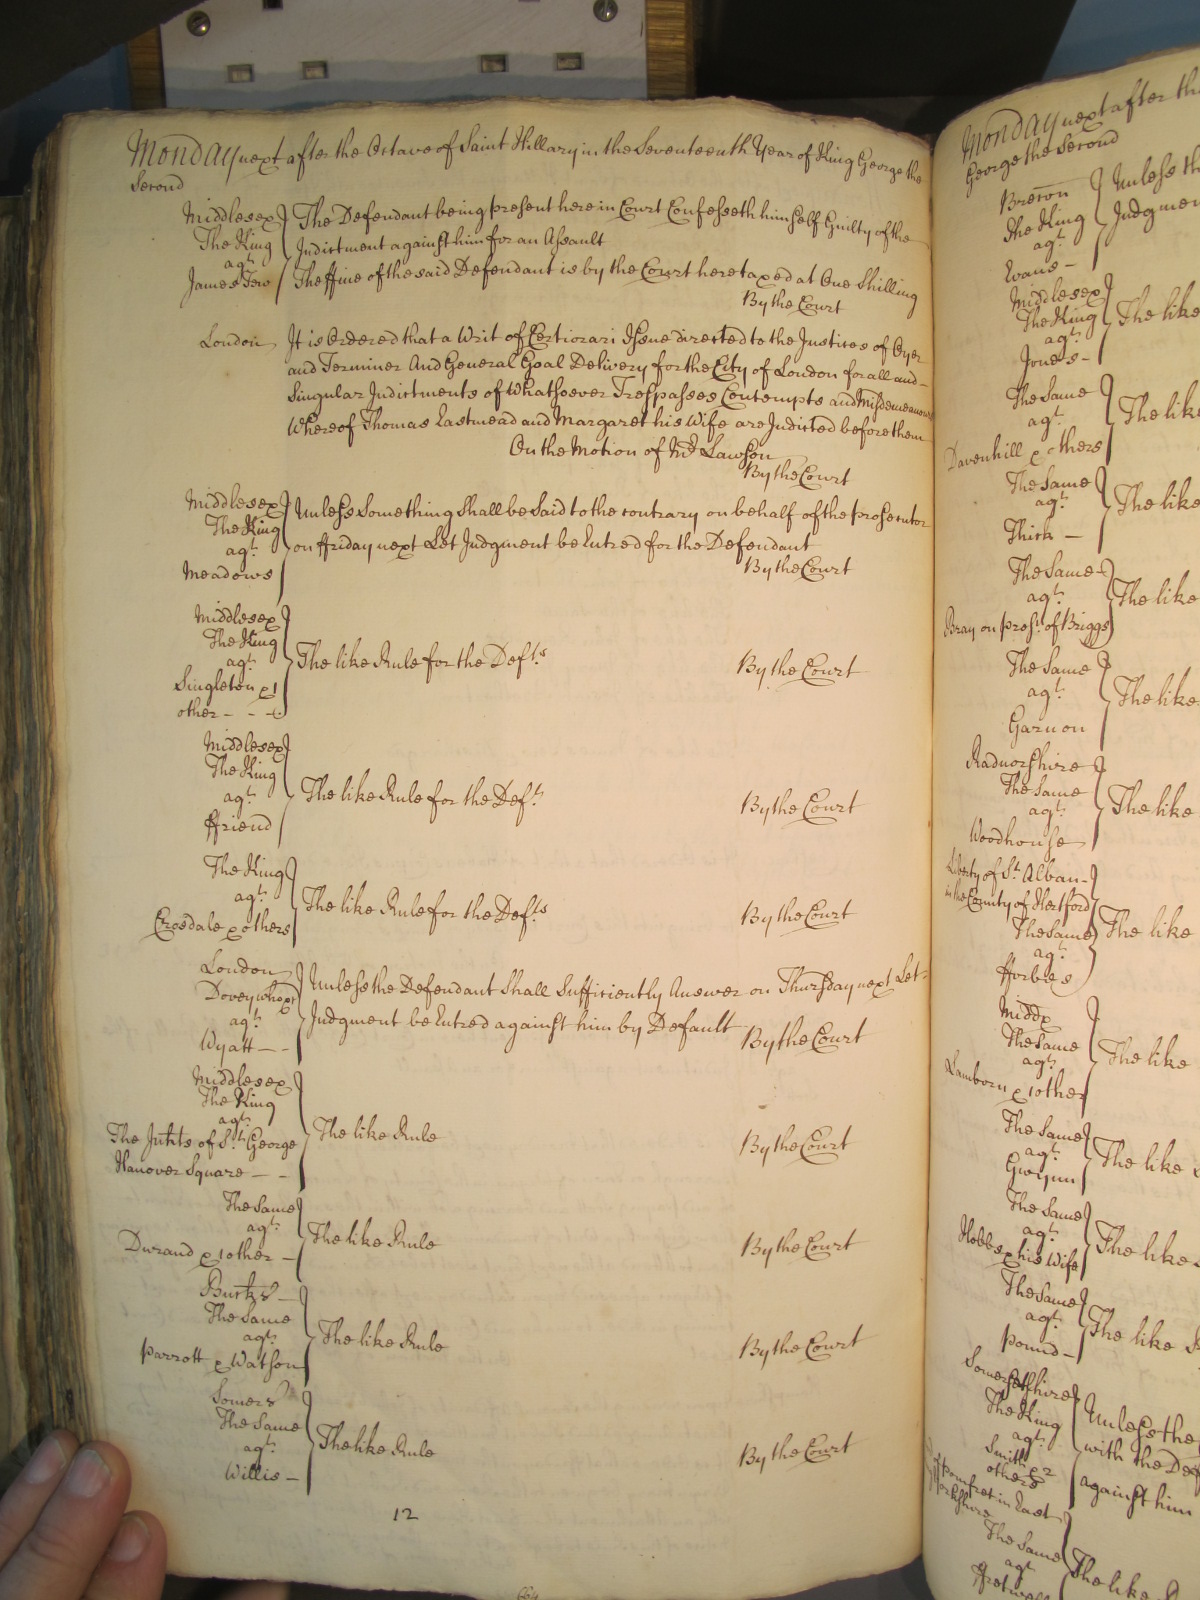 Monday next after the Octave of Saint Hillary in the Seventeenth Year of King George the
Second
Middlesex
The King
agt.
James Tew
The Defendant being present here in Court Confesseth himself Guilty of the
Indictment against him for an Assault
The ffine of the said Defendant is by the Court here taxed at One Shilling
By the Court
London
It is Ordered that a Writ of Certiorari Issue directed to the Justices of Oyer
and Terminer And General Goal Delivery for the City of London for all and
Singular Indictments of Whatsoever Trespasses Contempts and Misdemeanours
Whereof Thomas Eastmead and Margaret his Wife are Indicted before them
On the Motion of Mr. Lawson
By the Court
Middlesex
The King
agt.
Meadows
Unless Something Shall be Said to the contrary on behalf of the prosecutor
on ffriday next Let Judgment be Entred for the Defendant
By the Court
Middlesex
The King
agt.
Singleton & 1
other - - -
The like Rule for the Defts.
By the Court
Middlesex
The King
agt.
ffriend
The like Rule for the Deft.
By the Court
The King
agt.
Crosdale & others
The like Rule for the Defts.
By the Court
London
Dovey who &c
agt.
Wyatt - -
Unless the Defendant Shall Sufficiently Answer on Thursday next Let
Judgment be Entred against him by Default
By the Court
Middlesex
The King
agt.
The Inhts of St. George
Hanover Square - -
The like Rule
By the Court
The Same
agt.
Durand & 1 other -
The like Rule
By the Court
Bucks -
The Same
agt.
Parrott & Watson
The like Rule
By the Court
Somers
The Same
agt.
Willis -
The like Rule
By the Court
12
Monday next after th
George the Second
Brecon
The King
agt.
Evans -
Unless th
Judgmen
Middlesex
The King
agt.
Jones -
The like
The Same
agt.
Davenhill & others
The like
The Same
agt.
Thick -
The like
The Same -
agt.
Bray on pros. of Briggs
The like
The Same
agt.
Garnon
The like
Radnorshire
The Same
agt.
Woodhouse
The like
Liberty of St. Alban -
in the County of Hertford
The Same
agt.
fforbes
The like
Middx
The Same
agt.
Lamborn & 1 other
The like
The Same
agt.
Gwynn
The like
The Same
agt.
Hobbs & his Wife
The like
The Same
agt.
Pound -
The like
Somersetshire
The King
agt.
Smith & 2
others
Unless the
with the Def
against him
Pomfret in East
The Same
agt.
The like